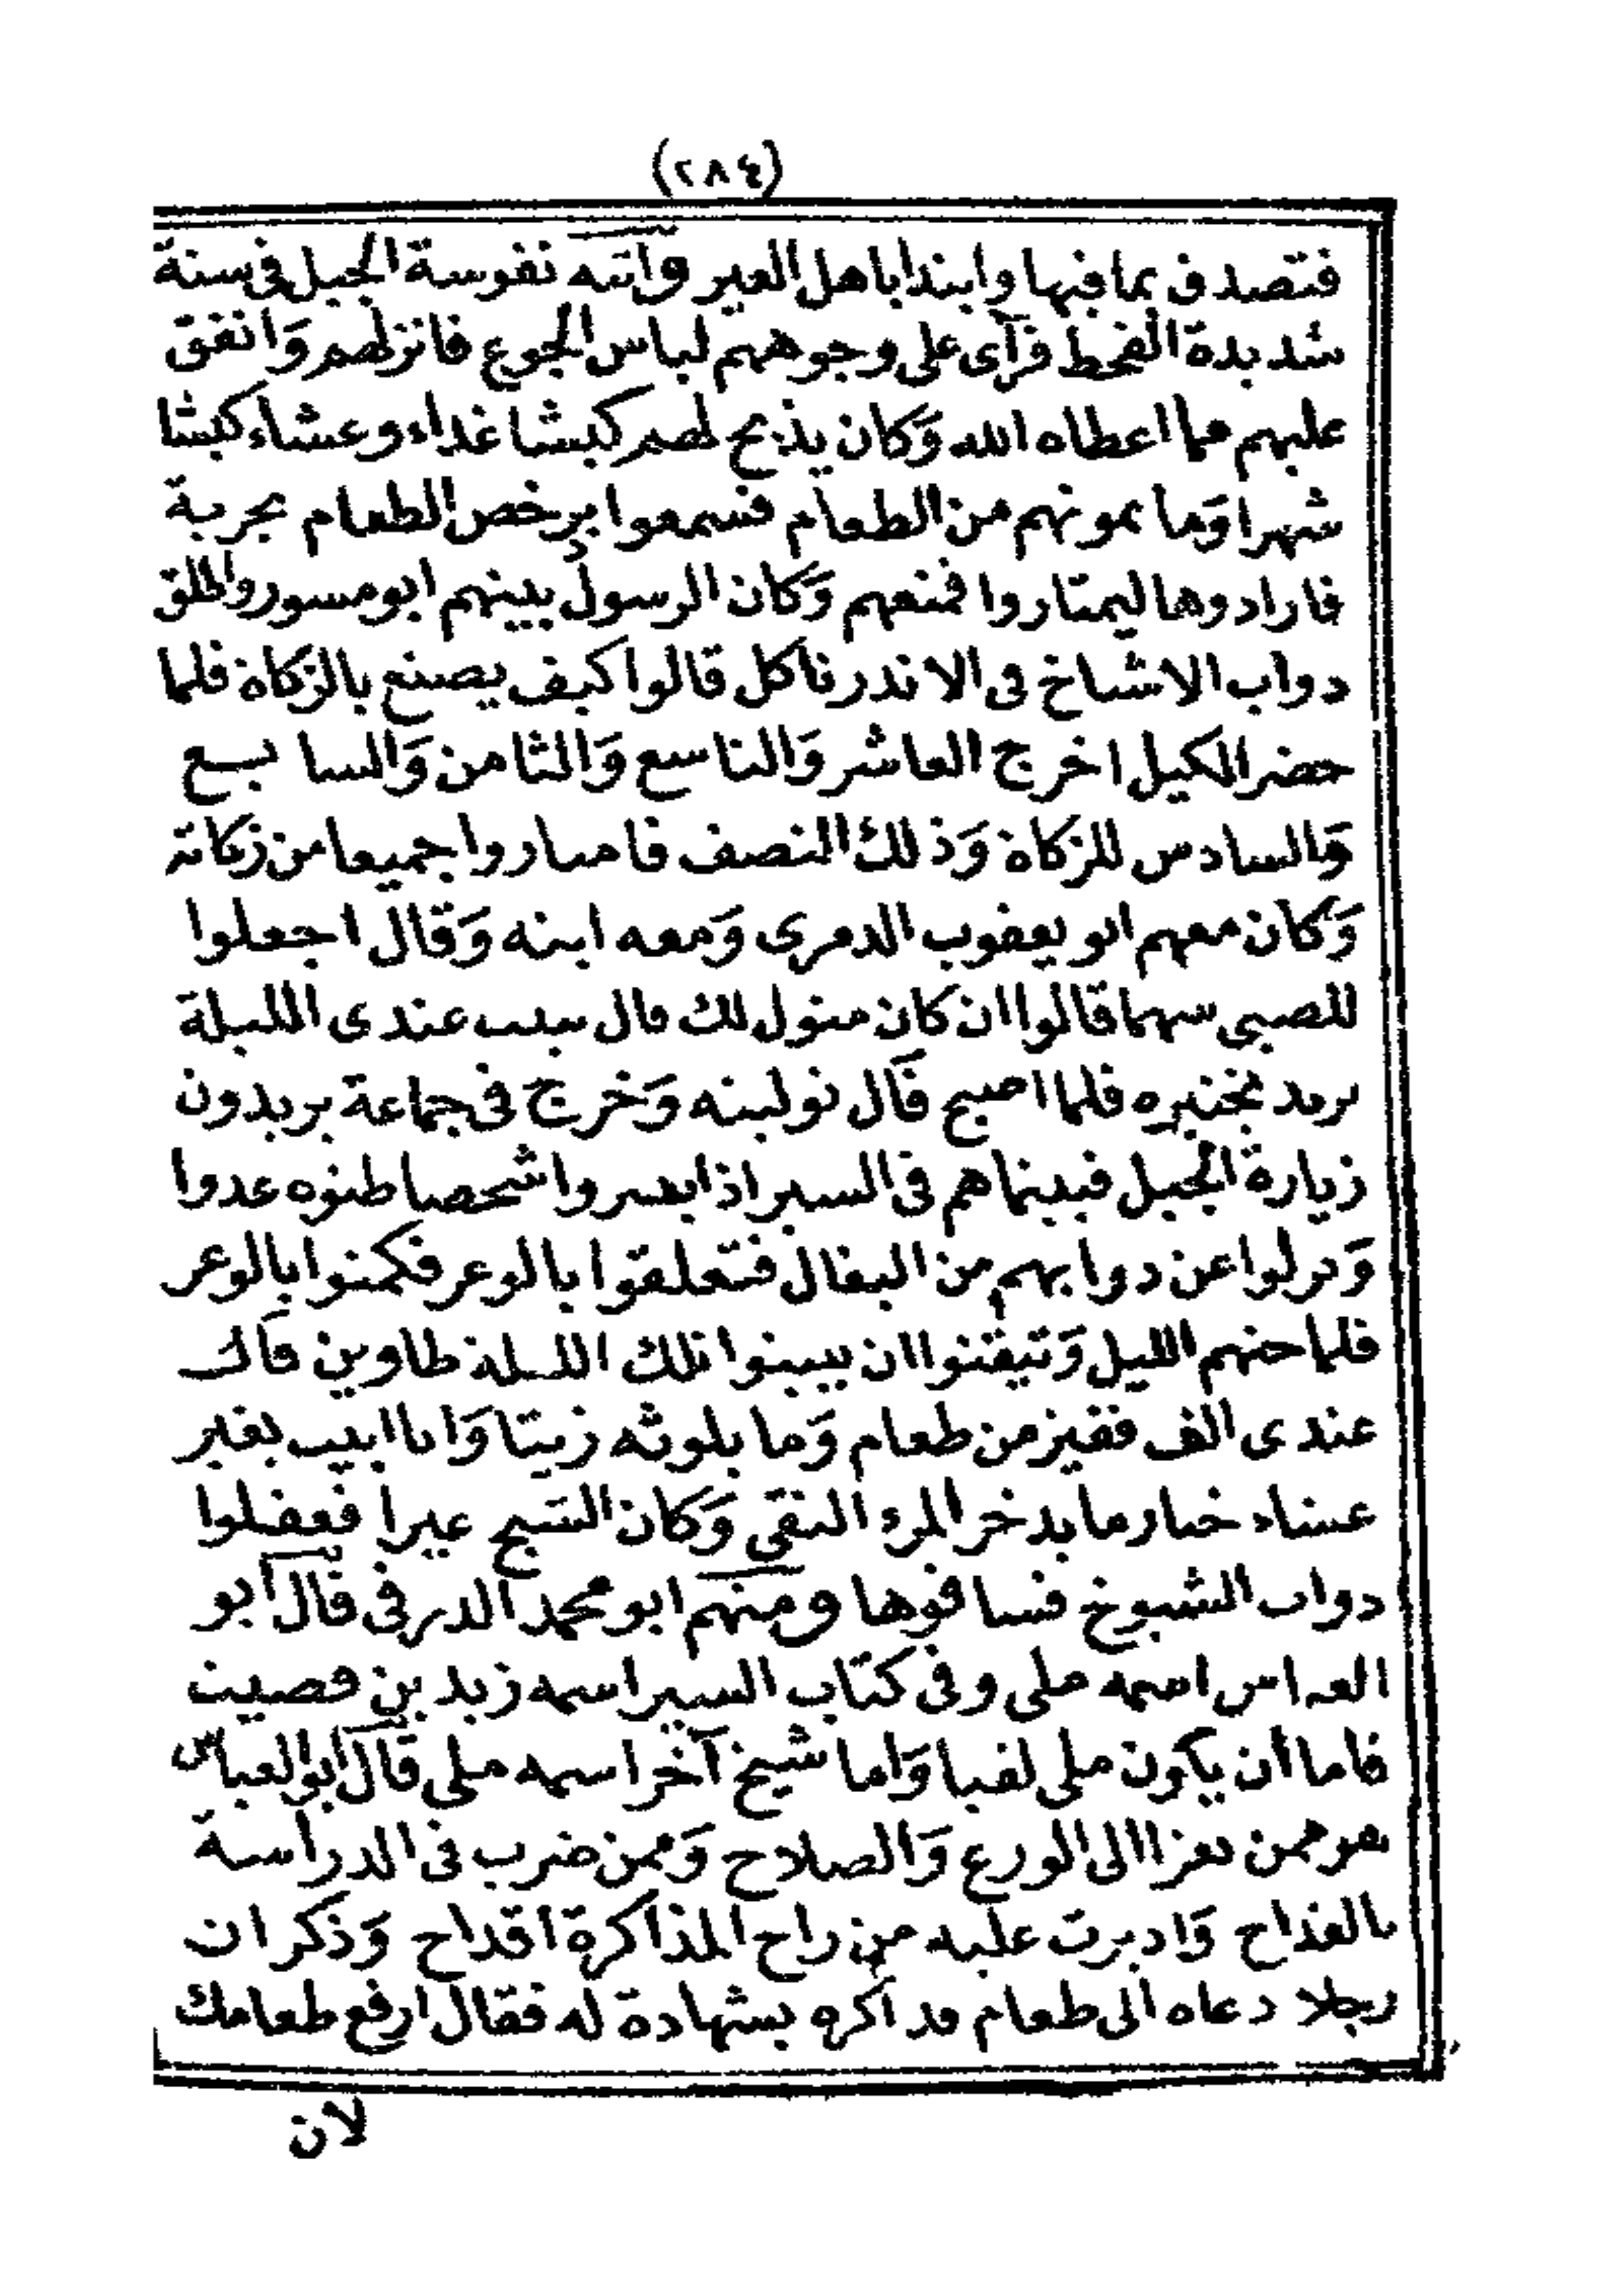 (٢٨٤)
فتصدق بما فيها وابتدا باهل العير واتته نفوسة الجبل فى سنة
شديدة القحط فرآى على وجوههم لباس الجوع فانزلهم وَانفق
عليهم مما اعطاه الله وَكان يذبح لهم كبشا غداء وعشاء كبشا
شهرا وَما يمونهم من الطعام فسمعوا برخص الطعام بجربة
فارادوها ليمتاروا فمنعهم وَكان الرسول بينهم ابو مسور واطلق
دواب الاشياخ فى الاندر تاكل قالوا كيف يصنع بالزكاة فلما
حضر الكيل اخرج العاشر وَالتاسع وَالثامن وَالسابـــع
وَالسادس للزكاة وَذلك النصف فامتاروا جميعا من زكاته
وَكان معهم ابو يعقوب الدمرى وَمعه ابنه وَقال اجعلوا
للصبى سهما قالوا ان كان متول لك قال يبيت عندى الليلة
يريد يختبره فلما اصبح قال توليته وَخرج فى جماعة يريدون
زيارة الجبل فبينما هم فى السير اذ ابصروا شخصا ظنوه عدوا
وَنزلوا عن دوابهم من البغال فتعلقوا بالوعر فكمنوا بالوعر
فلما جنهم الليل وَتيقنوا ان يبيتوا تلك الليلة طاوين قال
عندى الف قفيز من طعام وَما يلوثه زيتا وَانا ابيت بغير
عشاء خيار ما يدخر المرء التقى وَكان الشبح عيرا فعقلوا
دواب الشيوخ فساقوها ومنهم ابو محمد الدرفى قال ابو
العباس اسمه ملى وفى كتاب السير اسمه زيد بن فصيت
فاما أن يكون ملى لقبا وَاما شيخ آخر اسمه ملى قال ابو العباس
هو ممن يعزا الى الورع وَالصلاح وَممن ضرب فى الدراسة
بالقداح وَاديرت عليه من راح المذاكرة اقداح وَذكر ان
رجلا دعاه الى طعام فذاكره بشهادة له فقال ارفع طعامك
لان